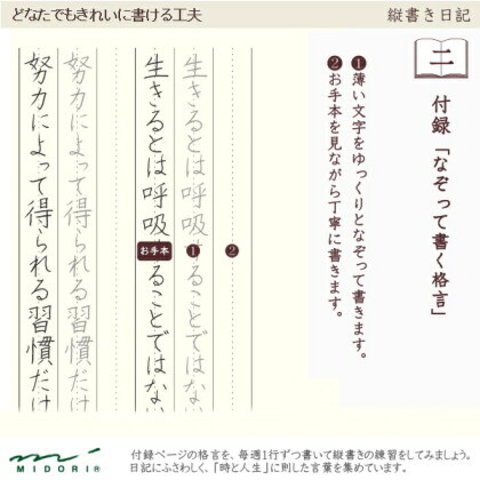 どなたでもきれいに書ける工夫
縦書き日記
二
付録「なぞって書く格言」
❶薄い文字をゆっくりとなぞって書きます。
❷お手本を見ながら丁寧に書きます。
❷
生きるとは呼吸
❶
ることではない
生きるとは呼吸
お手本
ることではない
努力によって得られる習慣だけ
努力によって得られる習慣だけ
MIDORI®
付録ページの格言を、毎週1行ずつ書いて縦書きの練習をしてみましょう。
日記にふさわしく、「時と人生」に則した言葉を集めています。